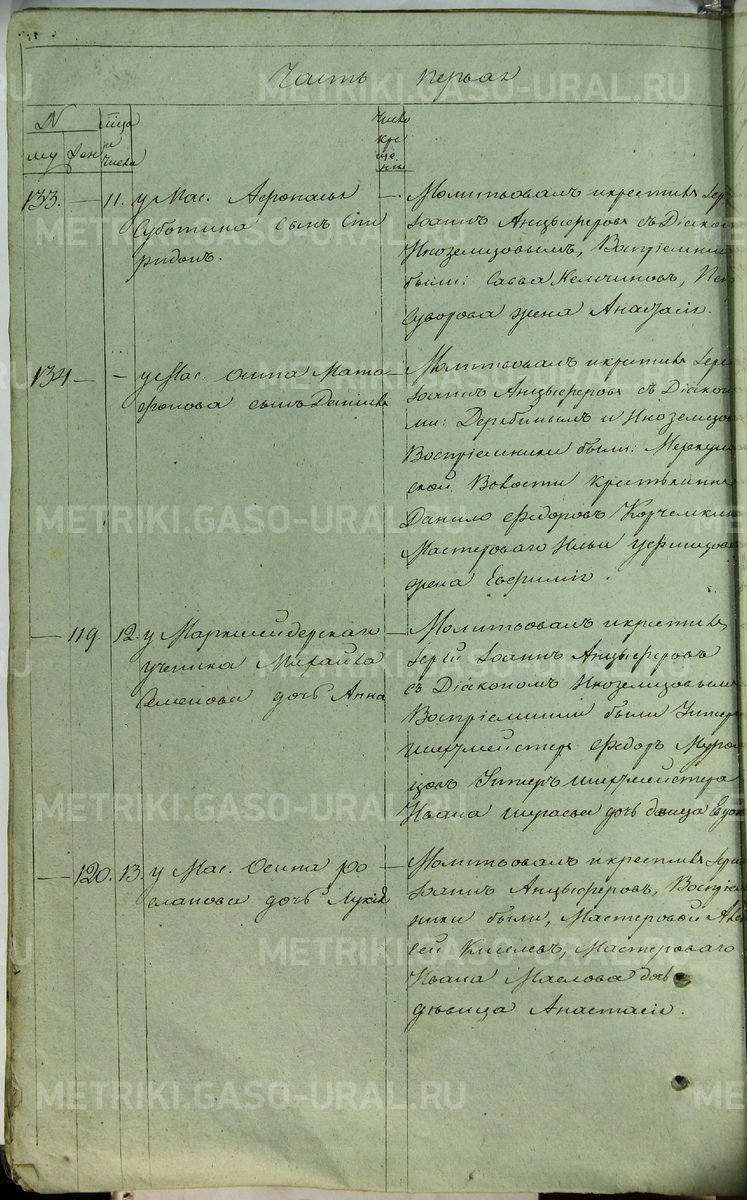 Часть первая
N
му фен
мца и числа
Число кре ще ния
133. — 11. у Мас.
Суботина сынъ Спи
ридонъ.
— Молитвовалъ и крестилъ
Іоаннъ Анцыферовъ съ Діакон
Иноземцовымъ, Воспріемни
были: Савва Немчиновъ,
Суворова жена Анастасія.
134 — — у Мас. Осипа Мата
фонова сынъ Даніилъ
— Молитвовалъ и крестилъ Іере
Іоаннъ Анцыферовъ съ Діакон
ми: Дерябинымъ и Иноземцов
Воспріемники были:
ской Волости крестьянинъ
Данило Федоровъ
Мастероваго Ильи
жена Евфимія.
— 119. 12. у Маркшейдерскаго
ученика Михайла
Семенова дочь Анна
— Молитвовалъ и крестилъ
Іерей Іоаннъ Анцыферовъ
съ Діакономъ Иноземцовым
Воспріемники были Унтеръ
шихтмейстеръ Федоръ
Унтеръ шихтмейстера
Ивана дочь девица Евдок
— 120. 13. у Мас. Осипа Ро
сланова дочь Лукія
— Молитвовалъ и крестилъ Іере
Іоаннъ Анцыферовъ, Воспріе
ники были, Мастеровой Але
сей Киселевъ, Мастероваго
Ивана Маслова дочь
дѣвица Анастасія.
METRIKI.GASO-URAL.RU